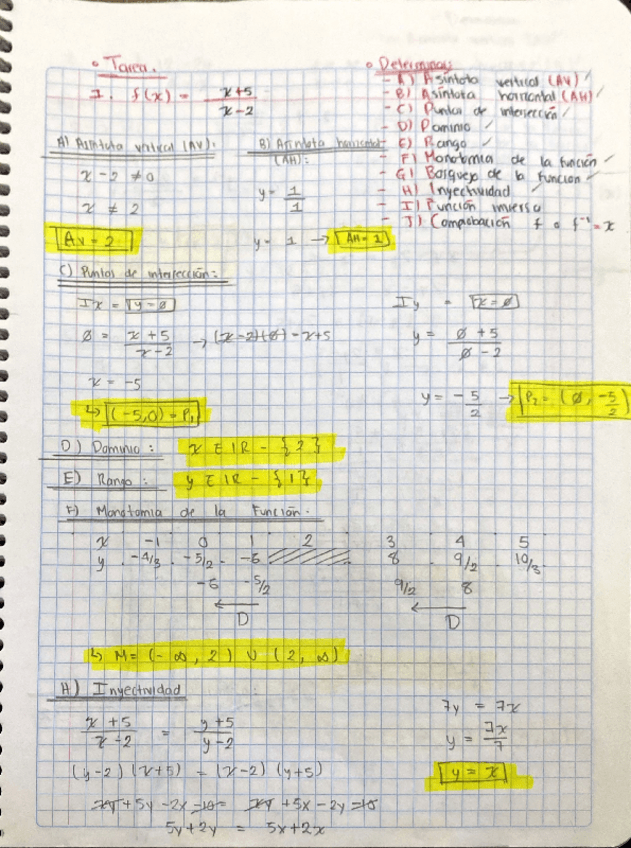 • Tarea.
1. f(x) = x+5 / x-2
• Determinar
- A) Asíntota vertical (AV) ✓
- B) Asíntota horizontal (AH) ✓
- C) Puntos de intersección ✓
- D) Dominio ✓
- E) Rango ✓
- F) Monotomia de la función ✓
- G) Bosquejo de la función ✓
- H) Inyectividad ✓
- I) Función inversa
- J) Comprobación f o f⁻¹ = x
A) Asíntota vertical (AV):
x - 2 ≠ 0
x ≠ 2
Av = 2
B) Asíntota horizontal
(AH):
y = 1/1
y = 1 → AH = 1
C) Puntos de intersección:
Ix = y = ø
ø = x + 5 / x - 2 → (x-2)(ø) = x+5
x = -5
↳ (-5,0) = P₁
Iy = x = ø
y = ø + 5 / ø - 2
y = - 5/2 → P₂ = (ø, -5/2)
D) Dominio: x ∈ IR - {2}
E) Rango: y ∈ IR - {1}
F) Monotomia de la Función.
x -1 0 1 2 3 4 5
y -4/3 -5/2 -6 8 9/2 10/3
-6 -5/2 9/2 8
← ←
D D
↳ M = (-∞, 2) ∪ (2, ∞)
H) Inyectividad
x + 5 / x - 2 = y + 5 / y - 2
(y-2)(x+5) = (x-2)(y+5)
xy + 5y - 2x - 10 = xy + 5x - 2y - 10
5y + 2y = 5x + 2x
7y = 7x
y = 7x/7
y = x